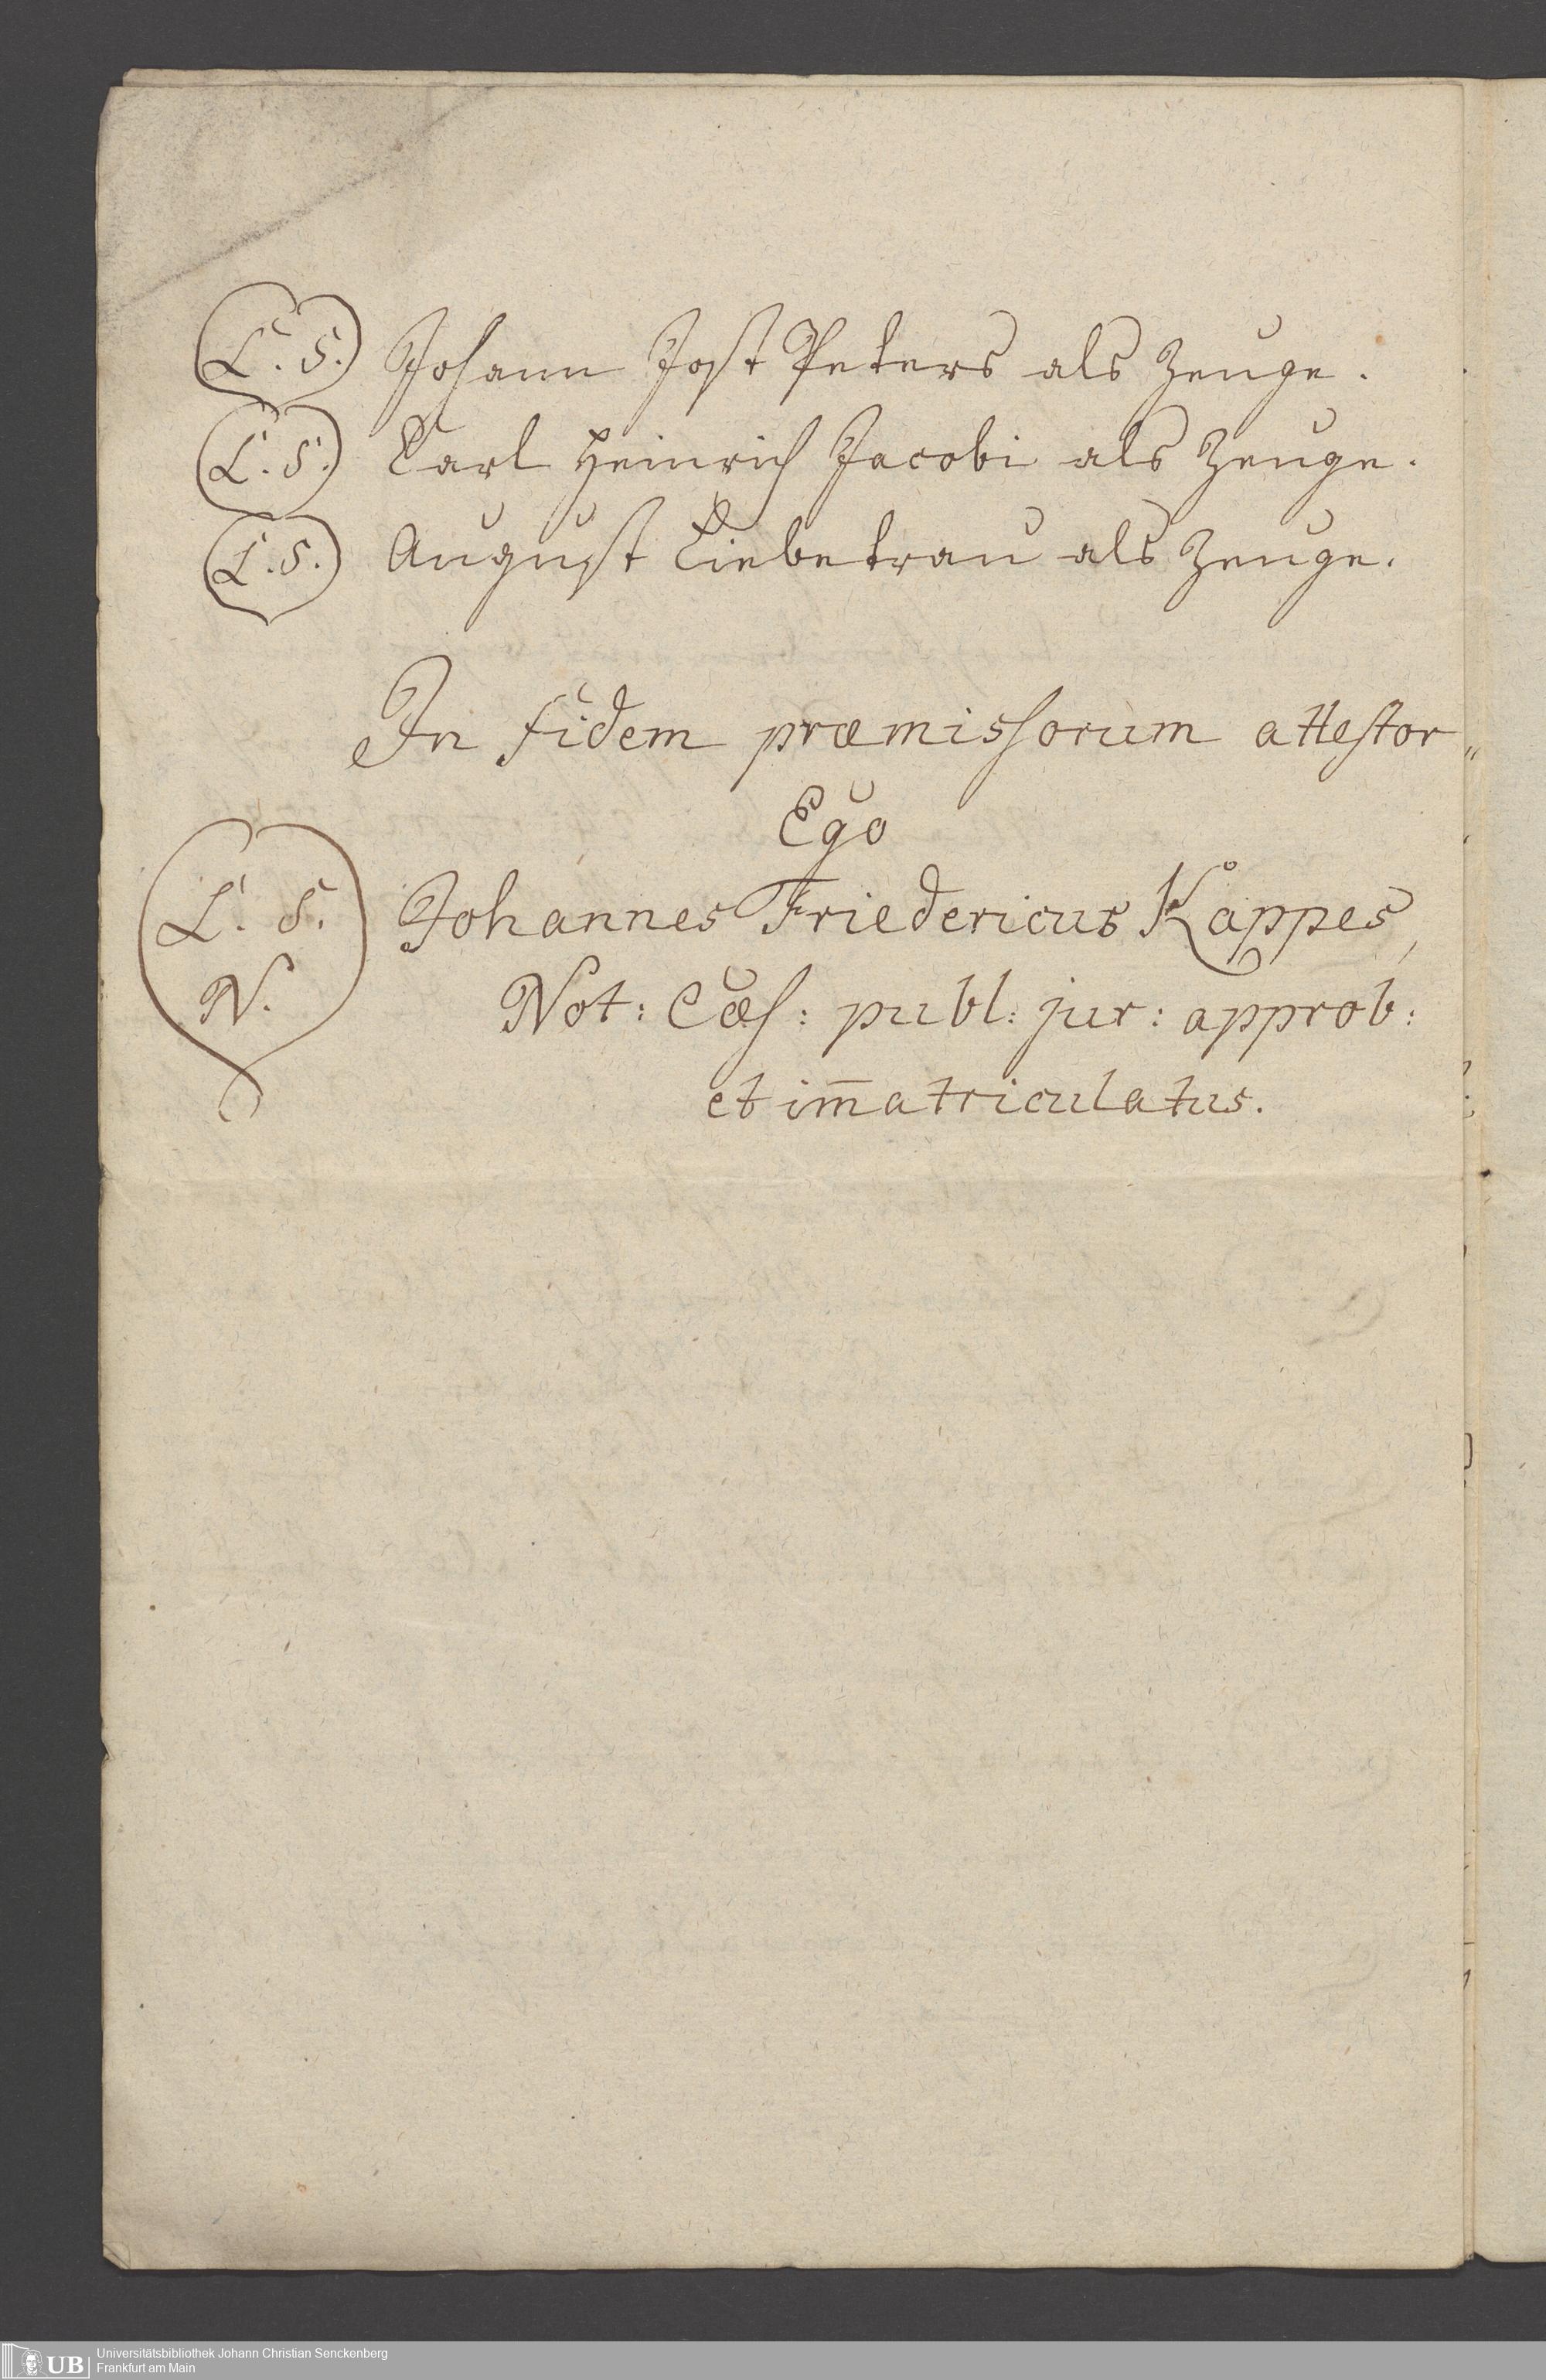 L. S. Johann Jost Peters als Zeuge.
L. S. Carl Heinrich Jacobi als Zeuge.
L. S. August Liebetrau als Zeuge.
In fidem præmissorum attestor
Ego
L. S. Johannes Friedericus Kappes,
N. Not: Cæs: publ: jur: approb:
et im̅atriculatus.
UB Universitätsbibliothek Johann Christian Senckenberg
Frankfurt am Main